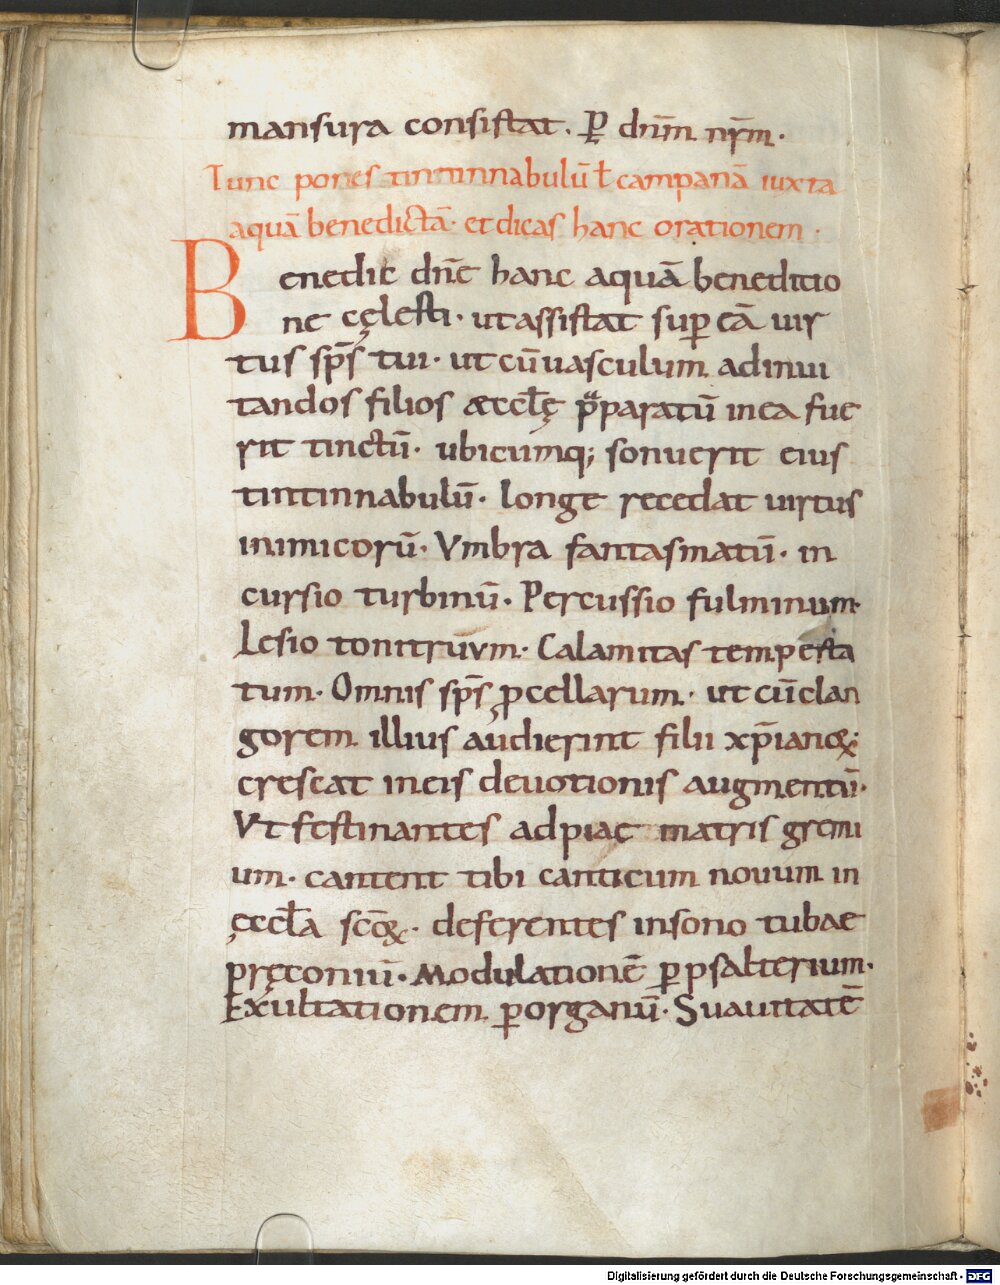 mansura consistat. P̲ dn̄m nr̄m.
Tunc pones tintinnabulū ł campanā iuxta
aquā benedictā. et dicas hanc orationem.
Benedic dn̄e hanc aquā beneditio
ne cęlesti. ut assistat sup̲ eā uir
tus sp̄s tui. ut cū uasculum ad inui
tandos filios æccl̄ę p̄paratū in ea fue
rit tinctū. ubicūmq; sonuerit eius
tintinnabulū. longe recedat uirtus
inimicorū. Vmbra fantasmatū. in
cursio turbinū. Percussio fulminum.
Lesio tonitruūm. Calamitas tempesta
tum. Omnis sp̄s ꝓcellarum. ut cū clan
gorem illius audierint filii xp̄ianoꝝ;
crescat in eis deuotionis augmentū.
Vt festinantes ad piae matris gremi
um. cantent tibi canticum nouum in
ęccl̄a sc̄oꝝ. deferentes in sono tubae
pręconiū. Modulationē p̲ psalterium.
Exultationem p̲ organū. Suauitatē
Digitalisierung gefördert durch die Deutsche Forschungsgemeinschaft - DFG